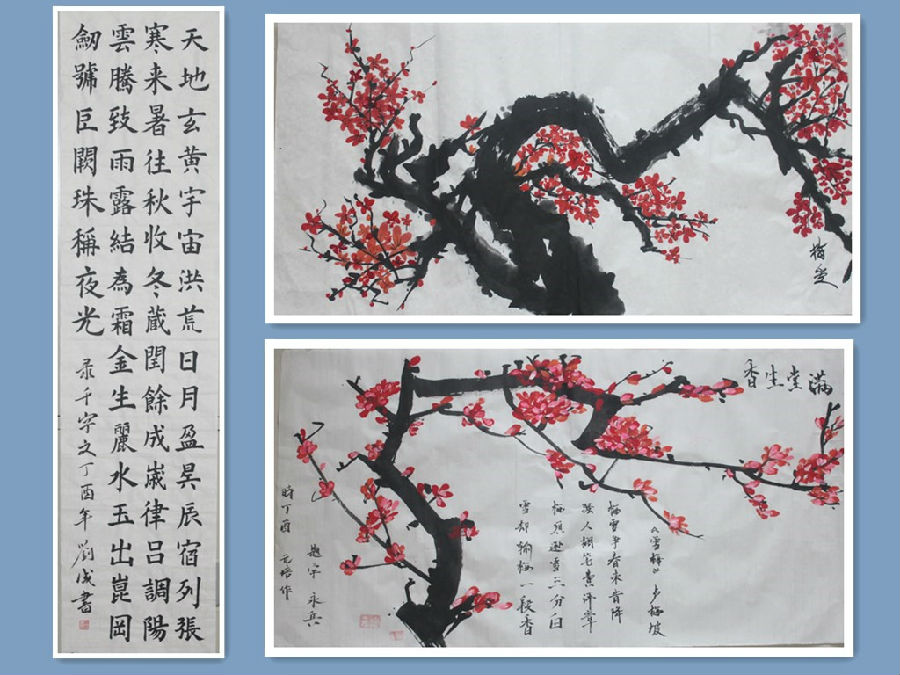 天地玄黃宇宙洪荒日月盈昃辰宿列張
寒来暑往秋收冬蔵閏餘成嵗律呂調陽
雲騰致雨露結為霜金生麗水玉出崑岡
劒號巨闕珠稱夜光 录千字文丁酉年 劉成書
梅
滿堂生香
《雪梅》卢梅坡
梅雪争春未肯降
骚人搁笔费评章
梅须逊雪三分白
雪却输梅一段香
题字 永兵
時丁酉 元培作